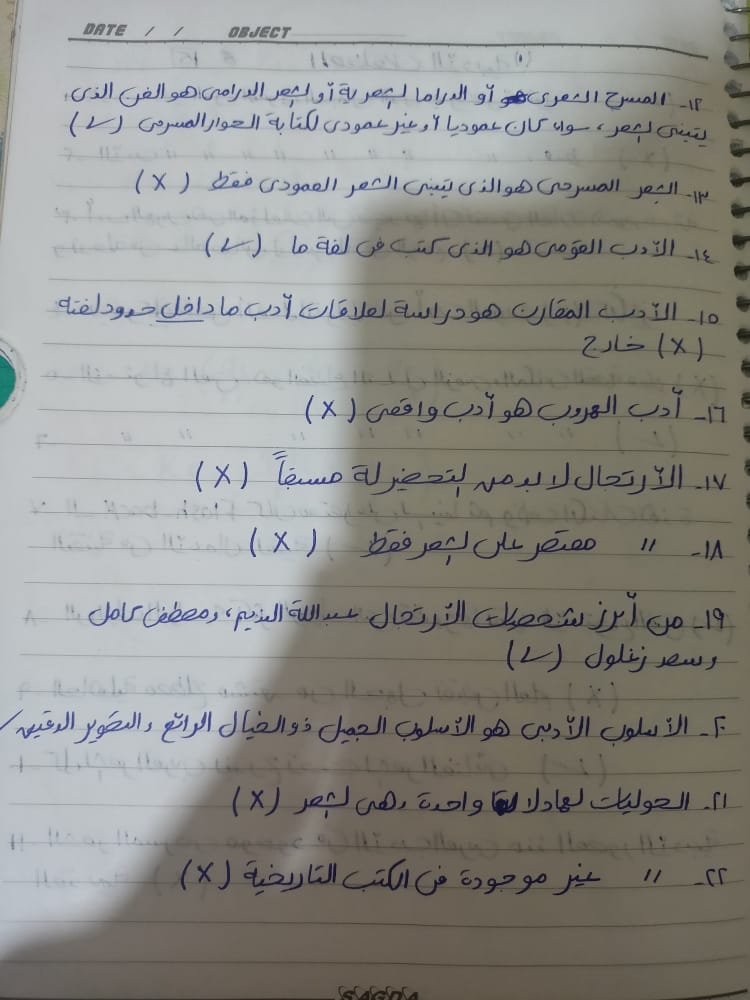 DATE / / OBJECT
١٢- المسرح الشعرى أو الدراما الشعرية أو الشعر الدرامى هو الفن الذى
يتبنى الشعر، سواء كان عموديا أو غير عمودى لكتابة الحوار المسرحى (✓)
١٣- الشعر المسرحى هو الذى يتبنى الشعر العمودى فقط (X)
١٤- الأدب القومى هو الذى كتب فى لغة ما (✓)
١٥- الأدب المقارن هو دراسة لعلاقات أدب ما داخل حدود لغته
(X) خارج
١٦- أدب الهروب هو أدب واقعى (X)
١٧- الأرتجال لابد من التحضير لة مسبقاً (X)
١٨- " مقتصر على الشعر فقط (X)
١٩- من أبرز شخصيات الأرتجال عبد اللة النديم، ومصطفى كامل
وسعد زغلول (✓)
٢٠- الأسلوب الأدبى هو الأسلوب الجميل ذو الخيال الرائع والتصوير الدقيق ✓
٢١- الحوليات لها دلالة واحدة وهى الشعر (X)
٢٢- " غير موجودة فى الكتب التاريخية (X)